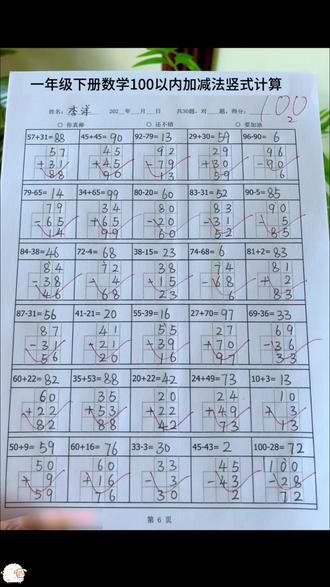 一年级下册数学100以内加减法竖式计算
姓名：李洋 202__年__月__日 共30题，对__题，得分：100
○ 你真棒 ○ 还不错 ○ 要加油
57+31=88 45+45=90 92-79=13 29+30=59 96-90=6
57 45 92 29 96
+31 +45 -79 +30 -90
88 90 13 59 6
79-65=14 34+65=99 80-20=60 83-31=52 90-5=85
79 34 80 83 90
-65 +65 -20 -31 -5
14 99 60 52 85
84-38=46 72-4=68 38-15=23 74-68=6 81+2=83
84 72 38 74 81
-38 -4 -15 -68 +2
46 68 23 6 83
87-31=56 41-21=20 55-39=16 27+70=97 69-36=33
87 41 55 27 69
-31 -21 -39 +70 -36
56 20 16 97 33
60+22=82 35+53=88 20+22=42 24+49=73 10+3=13
60 35 20 24 10
+22 +53 +22 +49 +3
82 88 42 73 13
50+9=59 60+16=76 33-3=30 45-43=2 100-28=72
50 60 33 45 100
+9 +16 -3 -43 -28
59 76 30 2 72
第 6 页